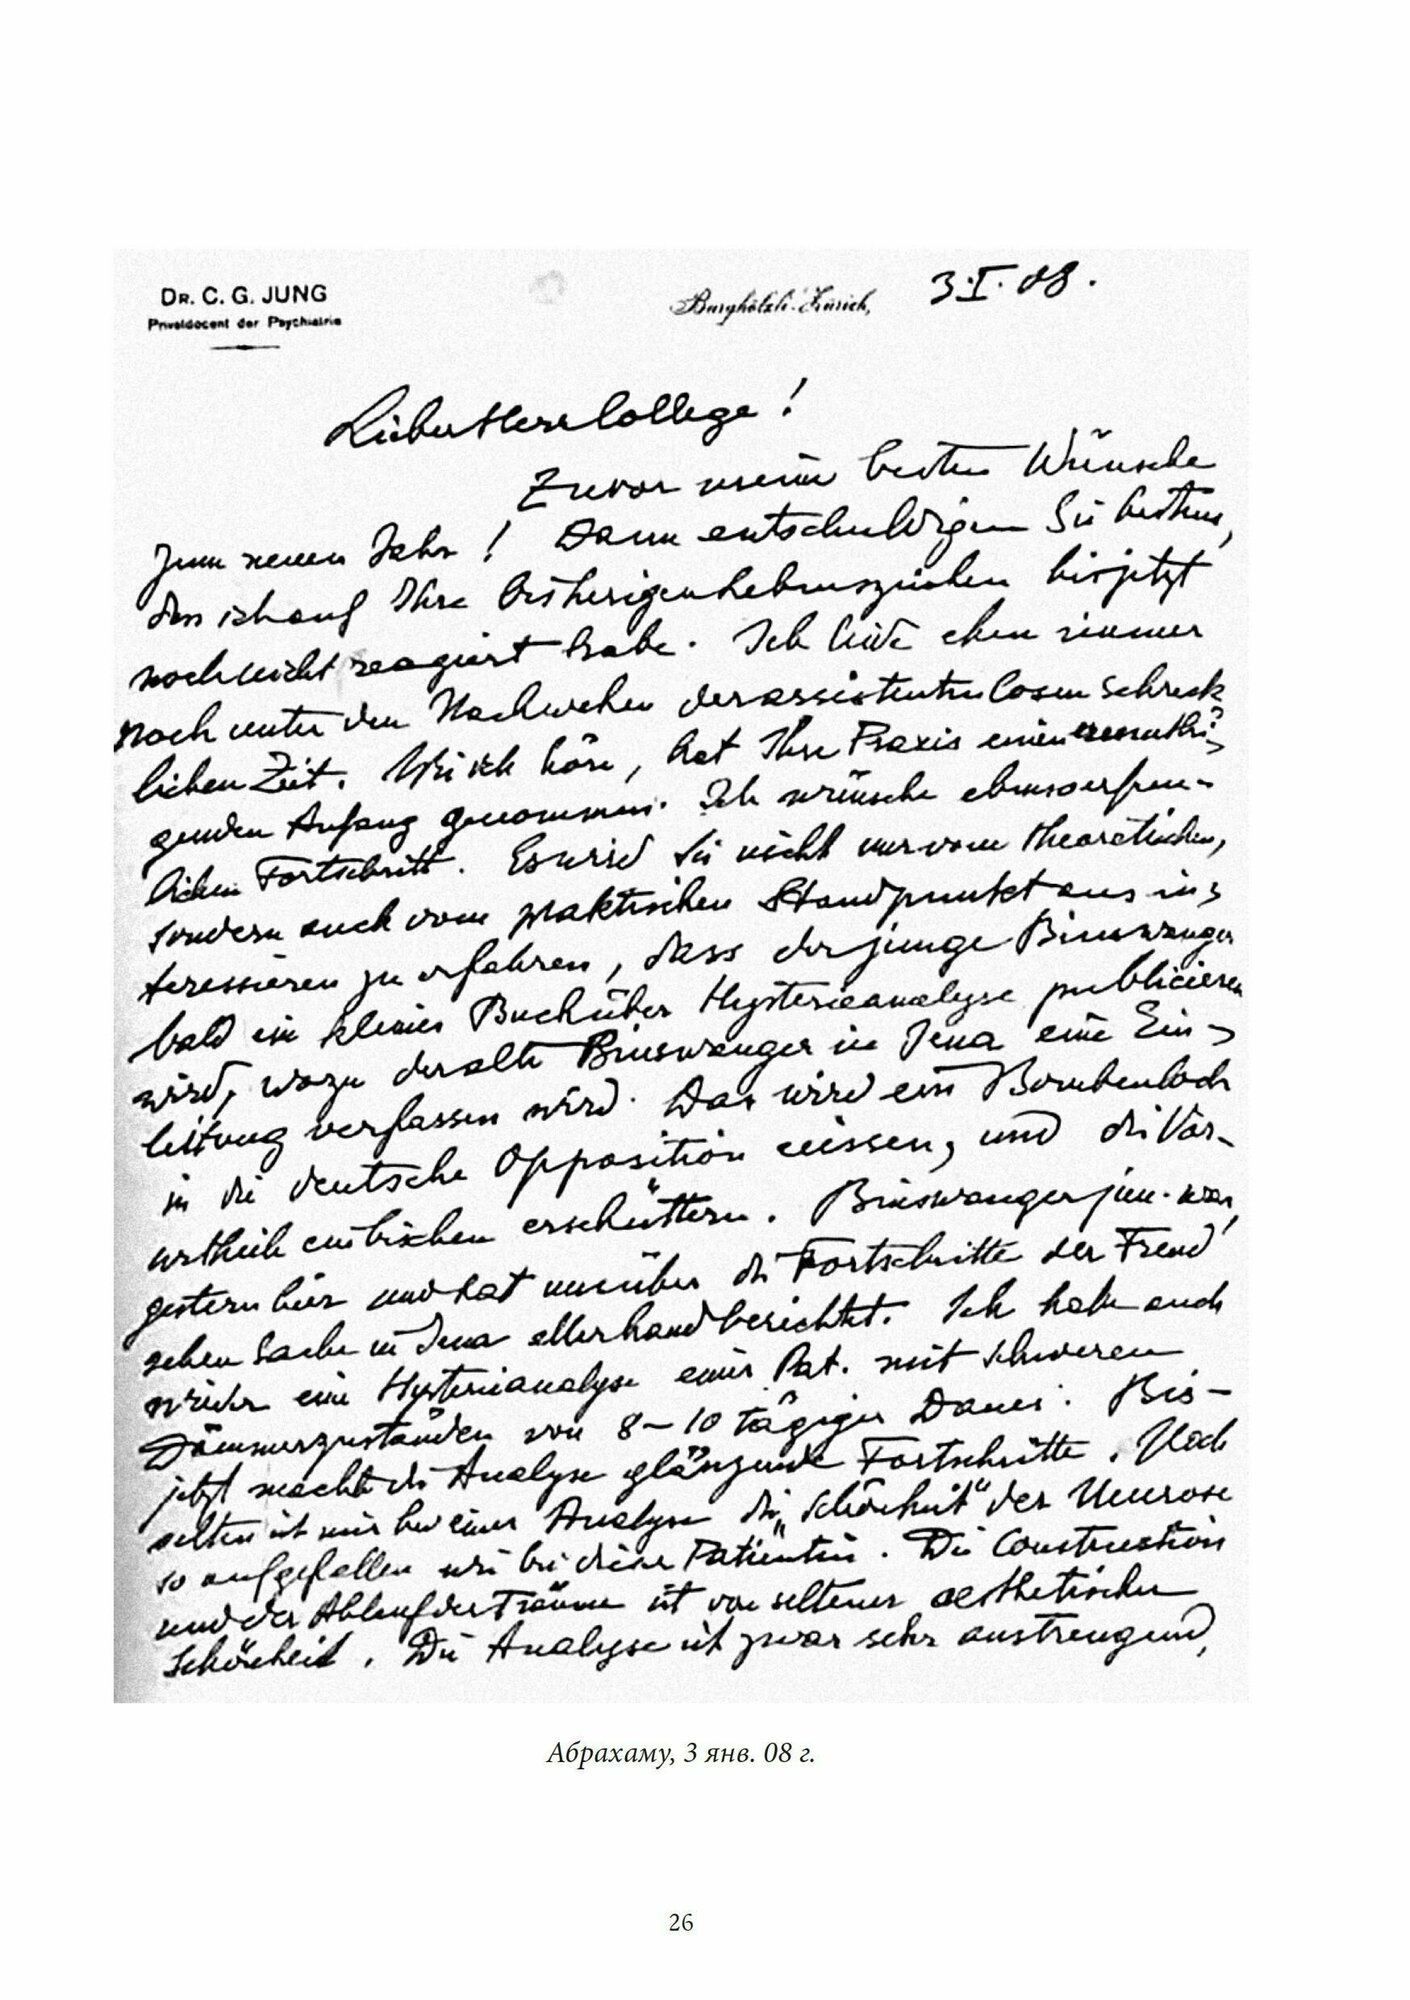 DR. C. G. JUNG
Privatdocent der Psychiatrie
Burghölzli-Zürich,
3.I.08.
Lieber Herr College!
Zuvor meine besten Wünsche
zum neuen Jahr! Dann entschuldigen Sie bestens,
dass ich auf Ihre bisherigen Lebenszeichen bis jetzt
noch nicht reagiert habe. Ich leide eben immer
noch unter den Nachwehen der assistentenlosen schreck
lichen Zeit. Wie ich höre, hat Ihre Praxis einen ermuthi-
genden Anfang genommen. Ich wünsche ebenso erfreu-
lichen Fortschritt. Es wird Sie nicht nur vom theoretischen,
sondern auch vom praktischen Standpunkt aus in-
teressieren zu erfahren, dass der junge Binswanger
bald ein kleines Buch über Hysterieanalyse publicieren
wird, wozu der alte Binswanger in Jena eine Ein-
leitung verfassen wird. Das wird ein Bombenloch
in die deutsche Opposition reissen, und die Vor-
urtheile erschüttern. Binswanger jun. war
gestern hier und hat mir über die Fortschritte der Freud'
schen Sache in Jena allerhand berichtet. Ich habe auch
wieder eine Hysterieanalyse einer Pat. mit schweren
Dämmerzuständen von 8–10 tägiger Dauer. Bis-
jetzt macht die Analyse glänzende Fortschritte. Noch
selten ist mir bei einer Analyse die „Schönheit" der Neurose
so aufgefallen wie bei dieser Patientin. Die Construction
und der Ablauf der Träume ist von seltener aesthetischer
Schönheit. Die Analyse ist zwar sehr anstrengend,
Абрахаму, 3 янв. 08 г.
26